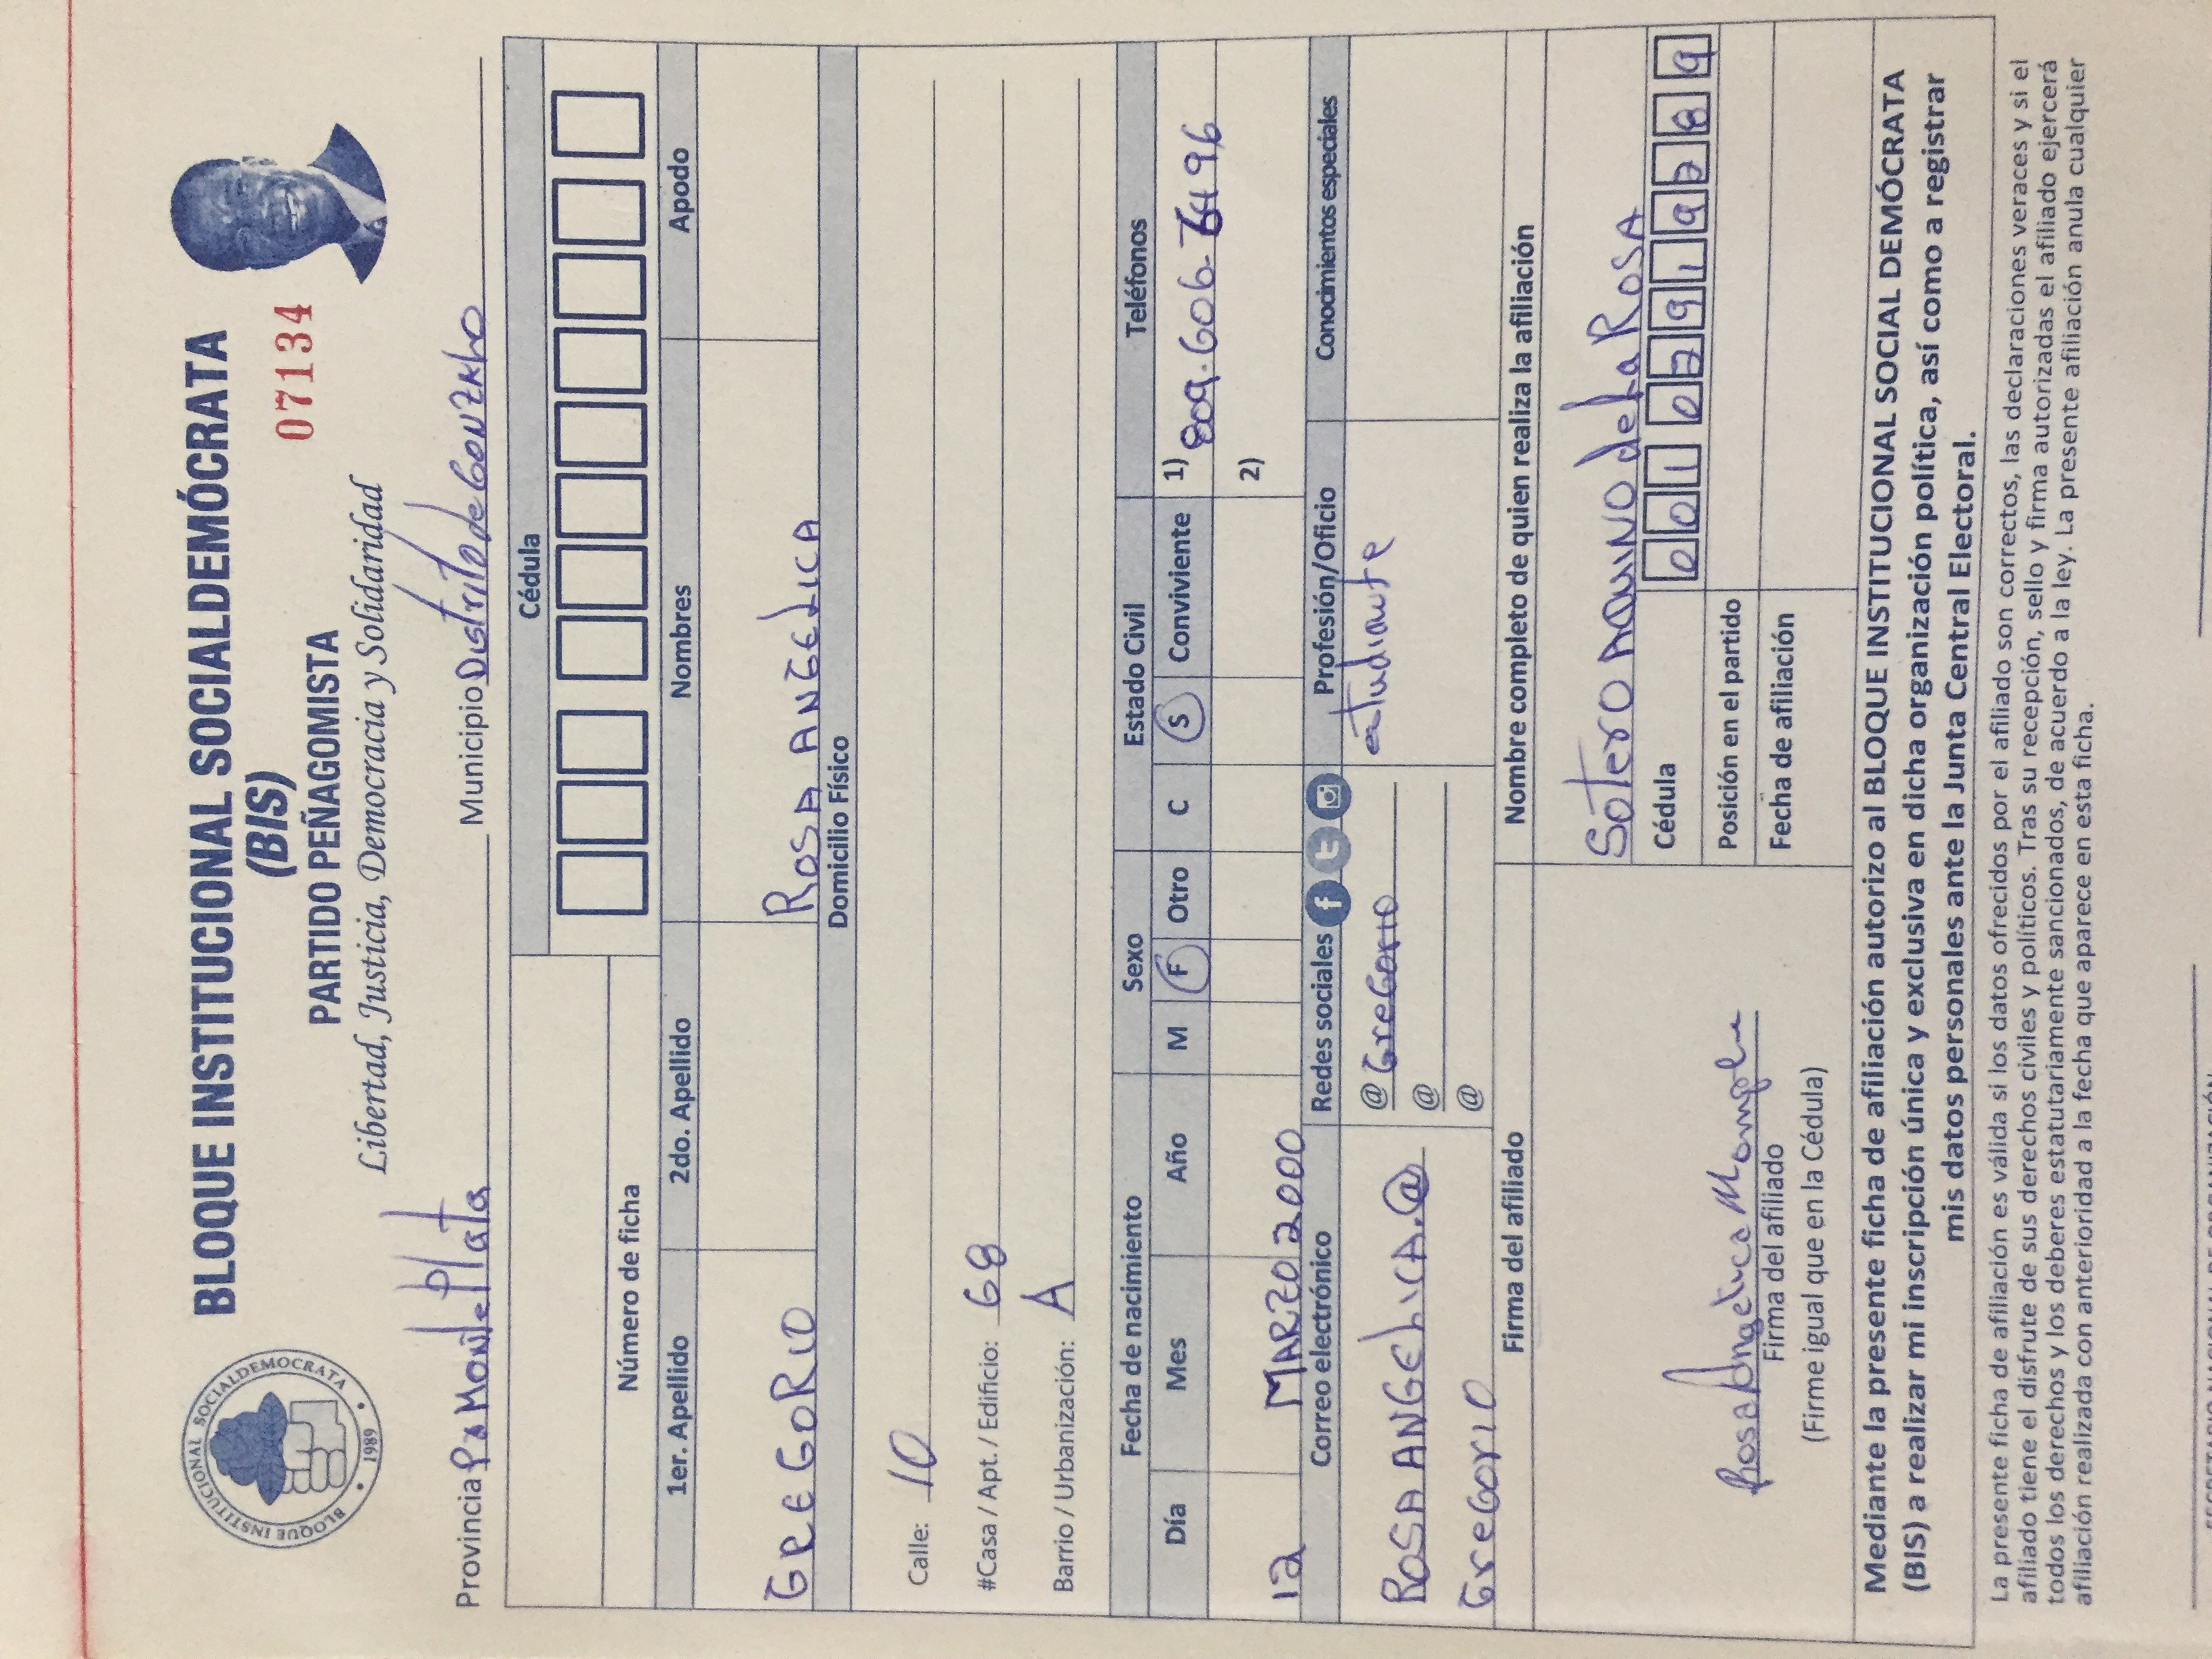 BLOQUE INSTITUCIONAL SOCIALDEMÓCRATA
(BIS)
07134
PARTIDO PEÑAGOMISTA
Libertad, Justicia, Democracia y Solidaridad
BLOQUE INSTITUCIONAL SOCIALDEMOCRATA
1989
Provincia Monte Plata Municipio Distrito de GONZALO
Cédula
Número de ficha
1er. Apellido 2do. Apellido Nombres Apodo
GREGORIO ROSA ANGELICA
Domicilio Físico
Calle: 10
#Casa / Apt. / Edificio: 68
Barrio / Urbanización: A
Fecha de nacimiento Sexo Estado Civil Teléfonos
Día Mes Año M F Otro C S Conviviente 1) 809.606-
12 MARZO 2000 2)
Correo electrónico Redes sociales Profesión/Oficio Conocimientos especiales
ROSA ANGELICA.@ @ GreGorio estudiante
GreGorio @
@
Firma del afiliado Nombre completo de quien realiza la afiliación
Sotero AQUINO de la ROSA
Cédula 0 0 1 0 7 9 1 9 7 8 9
Posición en el partido
Fecha de afiliación
Rosa Angelica
Firma del afiliado
(Firme igual que en la Cédula)
Mediante la presente ficha de afiliación autorizo al BLOQUE INSTITUCIONAL SOCIAL DEMÓCRATA
(BIS) a realizar mi inscripción única y exclusiva en dicha organización política, así como a registrar
mis datos personales ante la Junta Central Electoral.
La presente ficha de afiliación es válida si los datos ofrecidos por el afiliado son correctos, las declaraciones veraces y si el
afiliado tiene el disfrute de sus derechos civiles y políticos. Tras su recepción, sello y firma autorizadas el afiliado ejercerá
todos los derechos y los deberes estatutariamente sancionados, de acuerdo a la ley. La presente afiliación anula cualquier
afiliación realizada con anterioridad a la fecha que aparece en esta ficha.